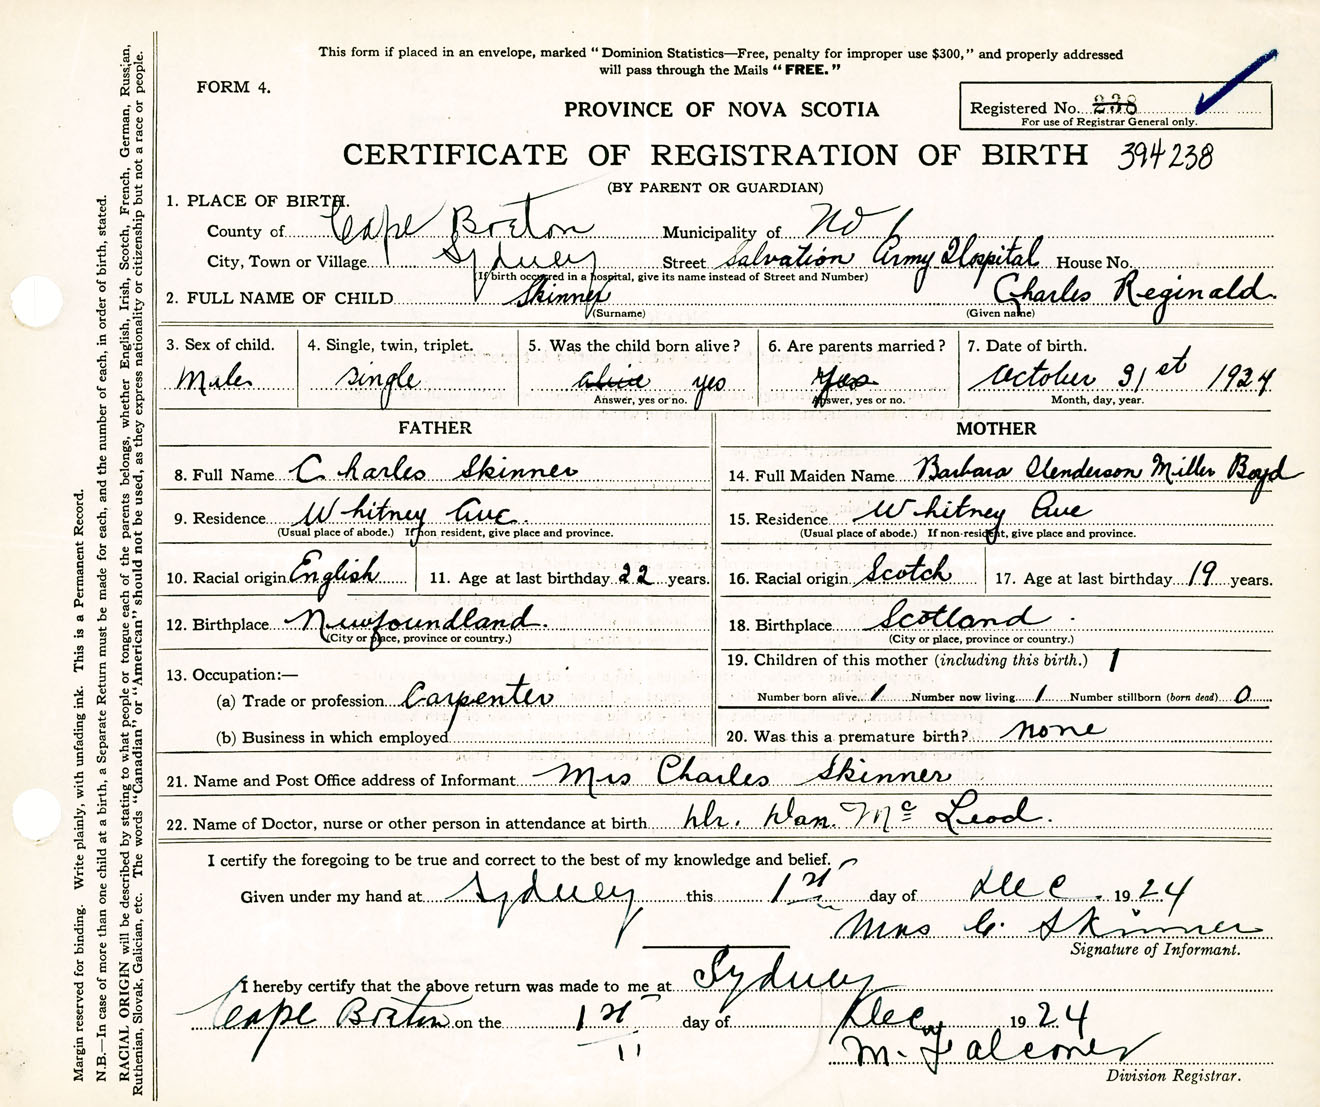 This form if placed in an envelope, marked "Dominion Statistics—Free, penalty for improper use $300," and properly addressed
will pass through the Mails "FREE."
FORM 4.
PROVINCE OF NOVA SCOTIA
Registered No. 238
For use of Registrar General only.
CERTIFICATE OF REGISTRATION OF BIRTH 394238
(BY PARENT OR GUARDIAN)
1. PLACE OF BIRTH.
County of Cape Breton Municipality of No 1
City, Town or Village Sydney Street Salvation Army Hospital House No.
(If birth occurred in a hospital, give its name instead of Street and Number)
2. FULL NAME OF CHILD Skinner Charles Reginald.
(Surname) (Given name)
3. Sex of child. 4. Single, twin, triplet. 5. Was the child born alive? 6. Are parents married? 7. Date of birth.
Male single alive yes Yes October 31st 1924
Answer, yes or no. Answer, yes or no. Month, day, year.
FATHER MOTHER
8. Full Name Charles Skinner 14. Full Maiden Name Barbara Henderson Miller Boyd
9. Residence Whitney Ave. 15. Residence Whitney Ave
(Usual place of abode.) If non resident, give place and province. (Usual place of abode.) If non-resident, give place and province.
10. Racial origin English 11. Age at last birthday 22 years. 16. Racial origin Scotch 17. Age at last birthday 19 years.
12. Birthplace Newfoundland. 18. Birthplace Scotland.
(City or place, province or country.) (City or place, province or country.)
19. Children of this mother (including this birth.) 1
13. Occupation:—
(a) Trade or profession Carpenter Number born alive 1 Number now living 1 Number stillborn (born dead) 0
(b) Business in which employed 20. Was this a premature birth? none
21. Name and Post Office address of Informant Mrs Charles Skinner
22. Name of Doctor, nurse or other person in attendance at birth Dr. Dan. Mc Leod.
I certify the foregoing to be true and correct to the best of my knowledge and belief.
Given under my hand at Sydney this 1st day of Dec. 1924
Mrs C. Skinner
Signature of Informant.
I hereby certify that the above return was made to me at Sydney
Cape Breton on the 1st day of Dec 1924
11
M. Falconer
Division Registrar.
Margin reserved for binding. Write plainly, with unfading ink. This is a Permanent Record.
N.B.—In case of more than one child at a birth, a Separate Return must be made for each, and the number of each, in order of birth, stated.
RACIAL ORIGIN will be described by stating to what people or tongue each of the parents belongs, whether English, Irish, Scotch, French, German, Russian,
Ruthenian, Slovak, Galician, etc. The words "Canadian" or "American" should not be used, as they express nationality or citizenship but not a race or people.